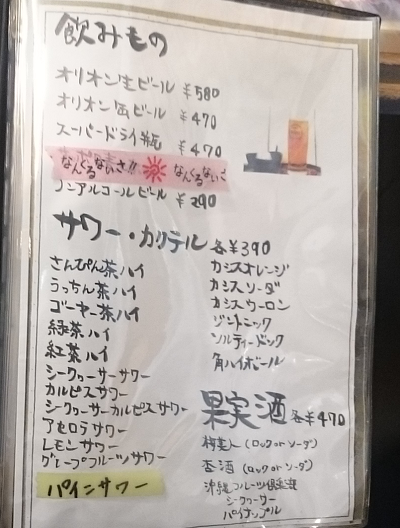 飲みもの
オリオン生ビール ¥580
オリオン缶ビール ¥470
スーパードライ瓶 ¥470
なんくるないさ!! なんくるないさ
ノンアルコールビール ¥290
サワー・カクテル 各¥390
さんぴん茶ハイ
うっちん茶ハイ
ゴーヤー茶ハイ
緑茶ハイ
紅茶ハイ
シークヮーサーサワー
カルピスサワー
シークヮーサーカルピスサワー
アセロラサワー
レモンサワー
グレープフルーツサワー
パインサワー
カシスオレンジ
カシスソーダ
カシスウーロン
ジントニック
ソルティードック
角ハイボール
果実酒 各¥470
梅美人 (ロックorソーダ)
杏酒 (ロックorソーダ)
沖縄フルーツ
シークヮーサー
パイナップル